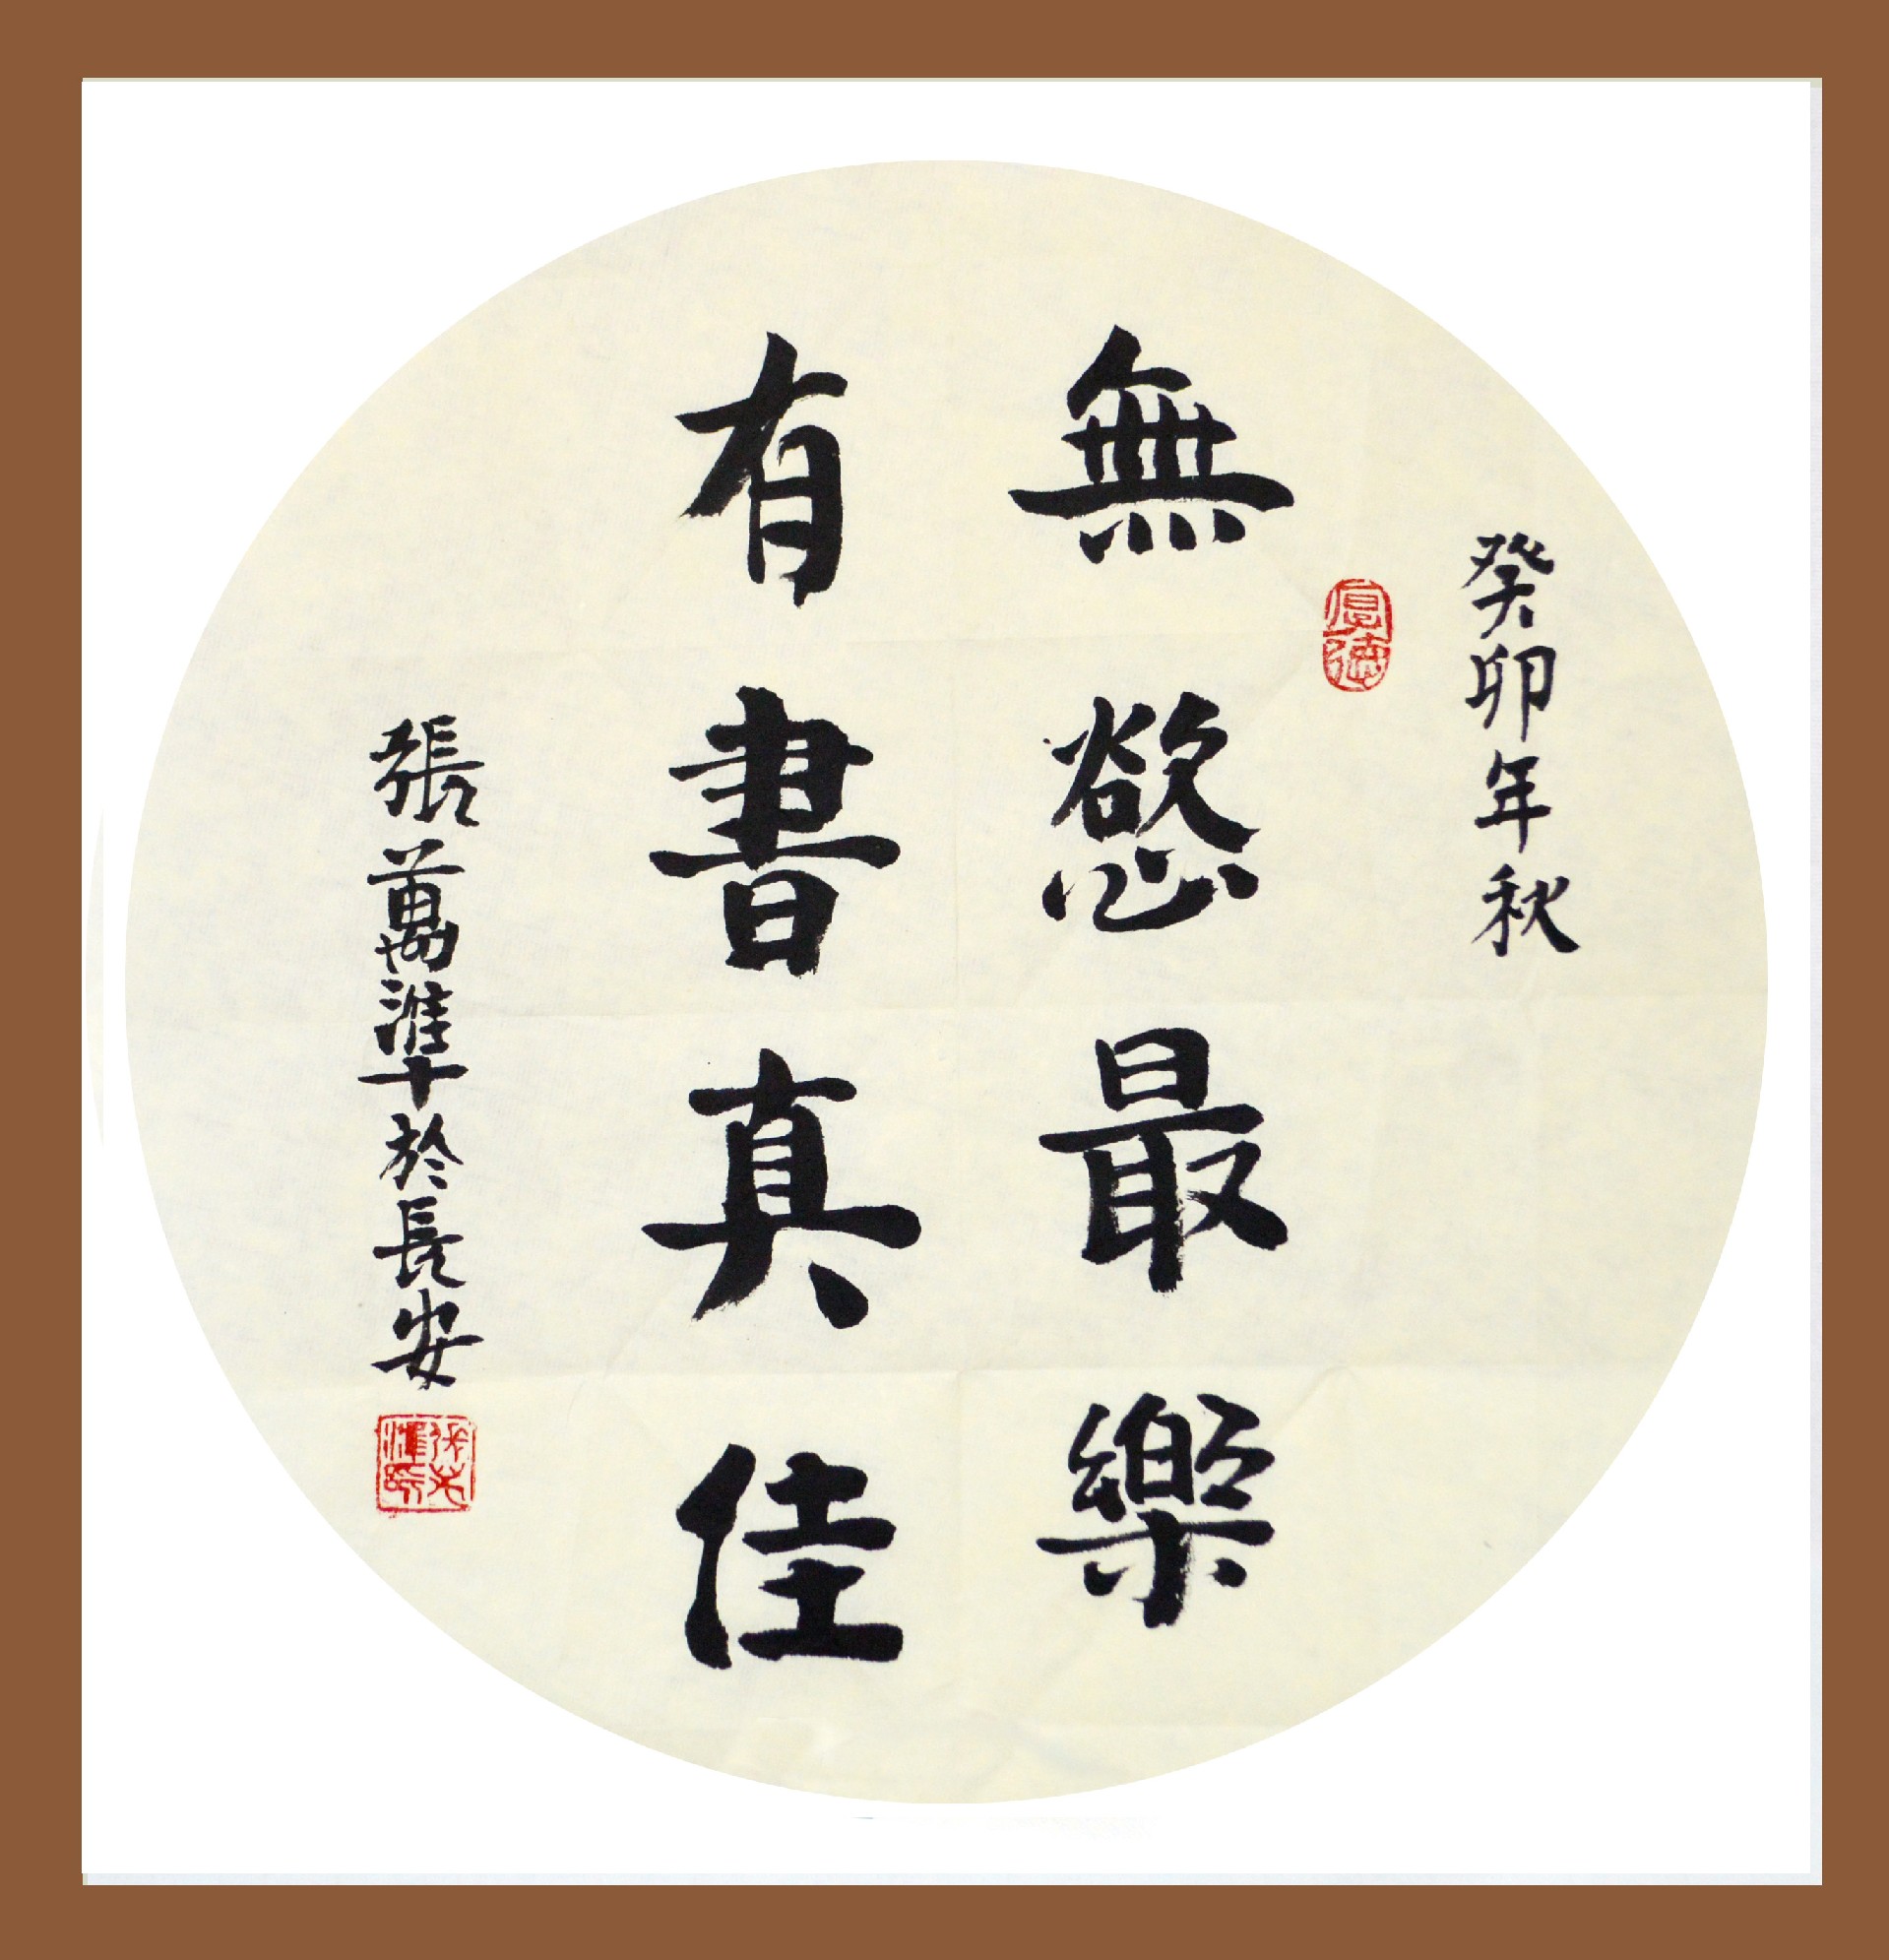 癸卯年秋
厚德
無慾最樂
有書真佳
張萬準於長安